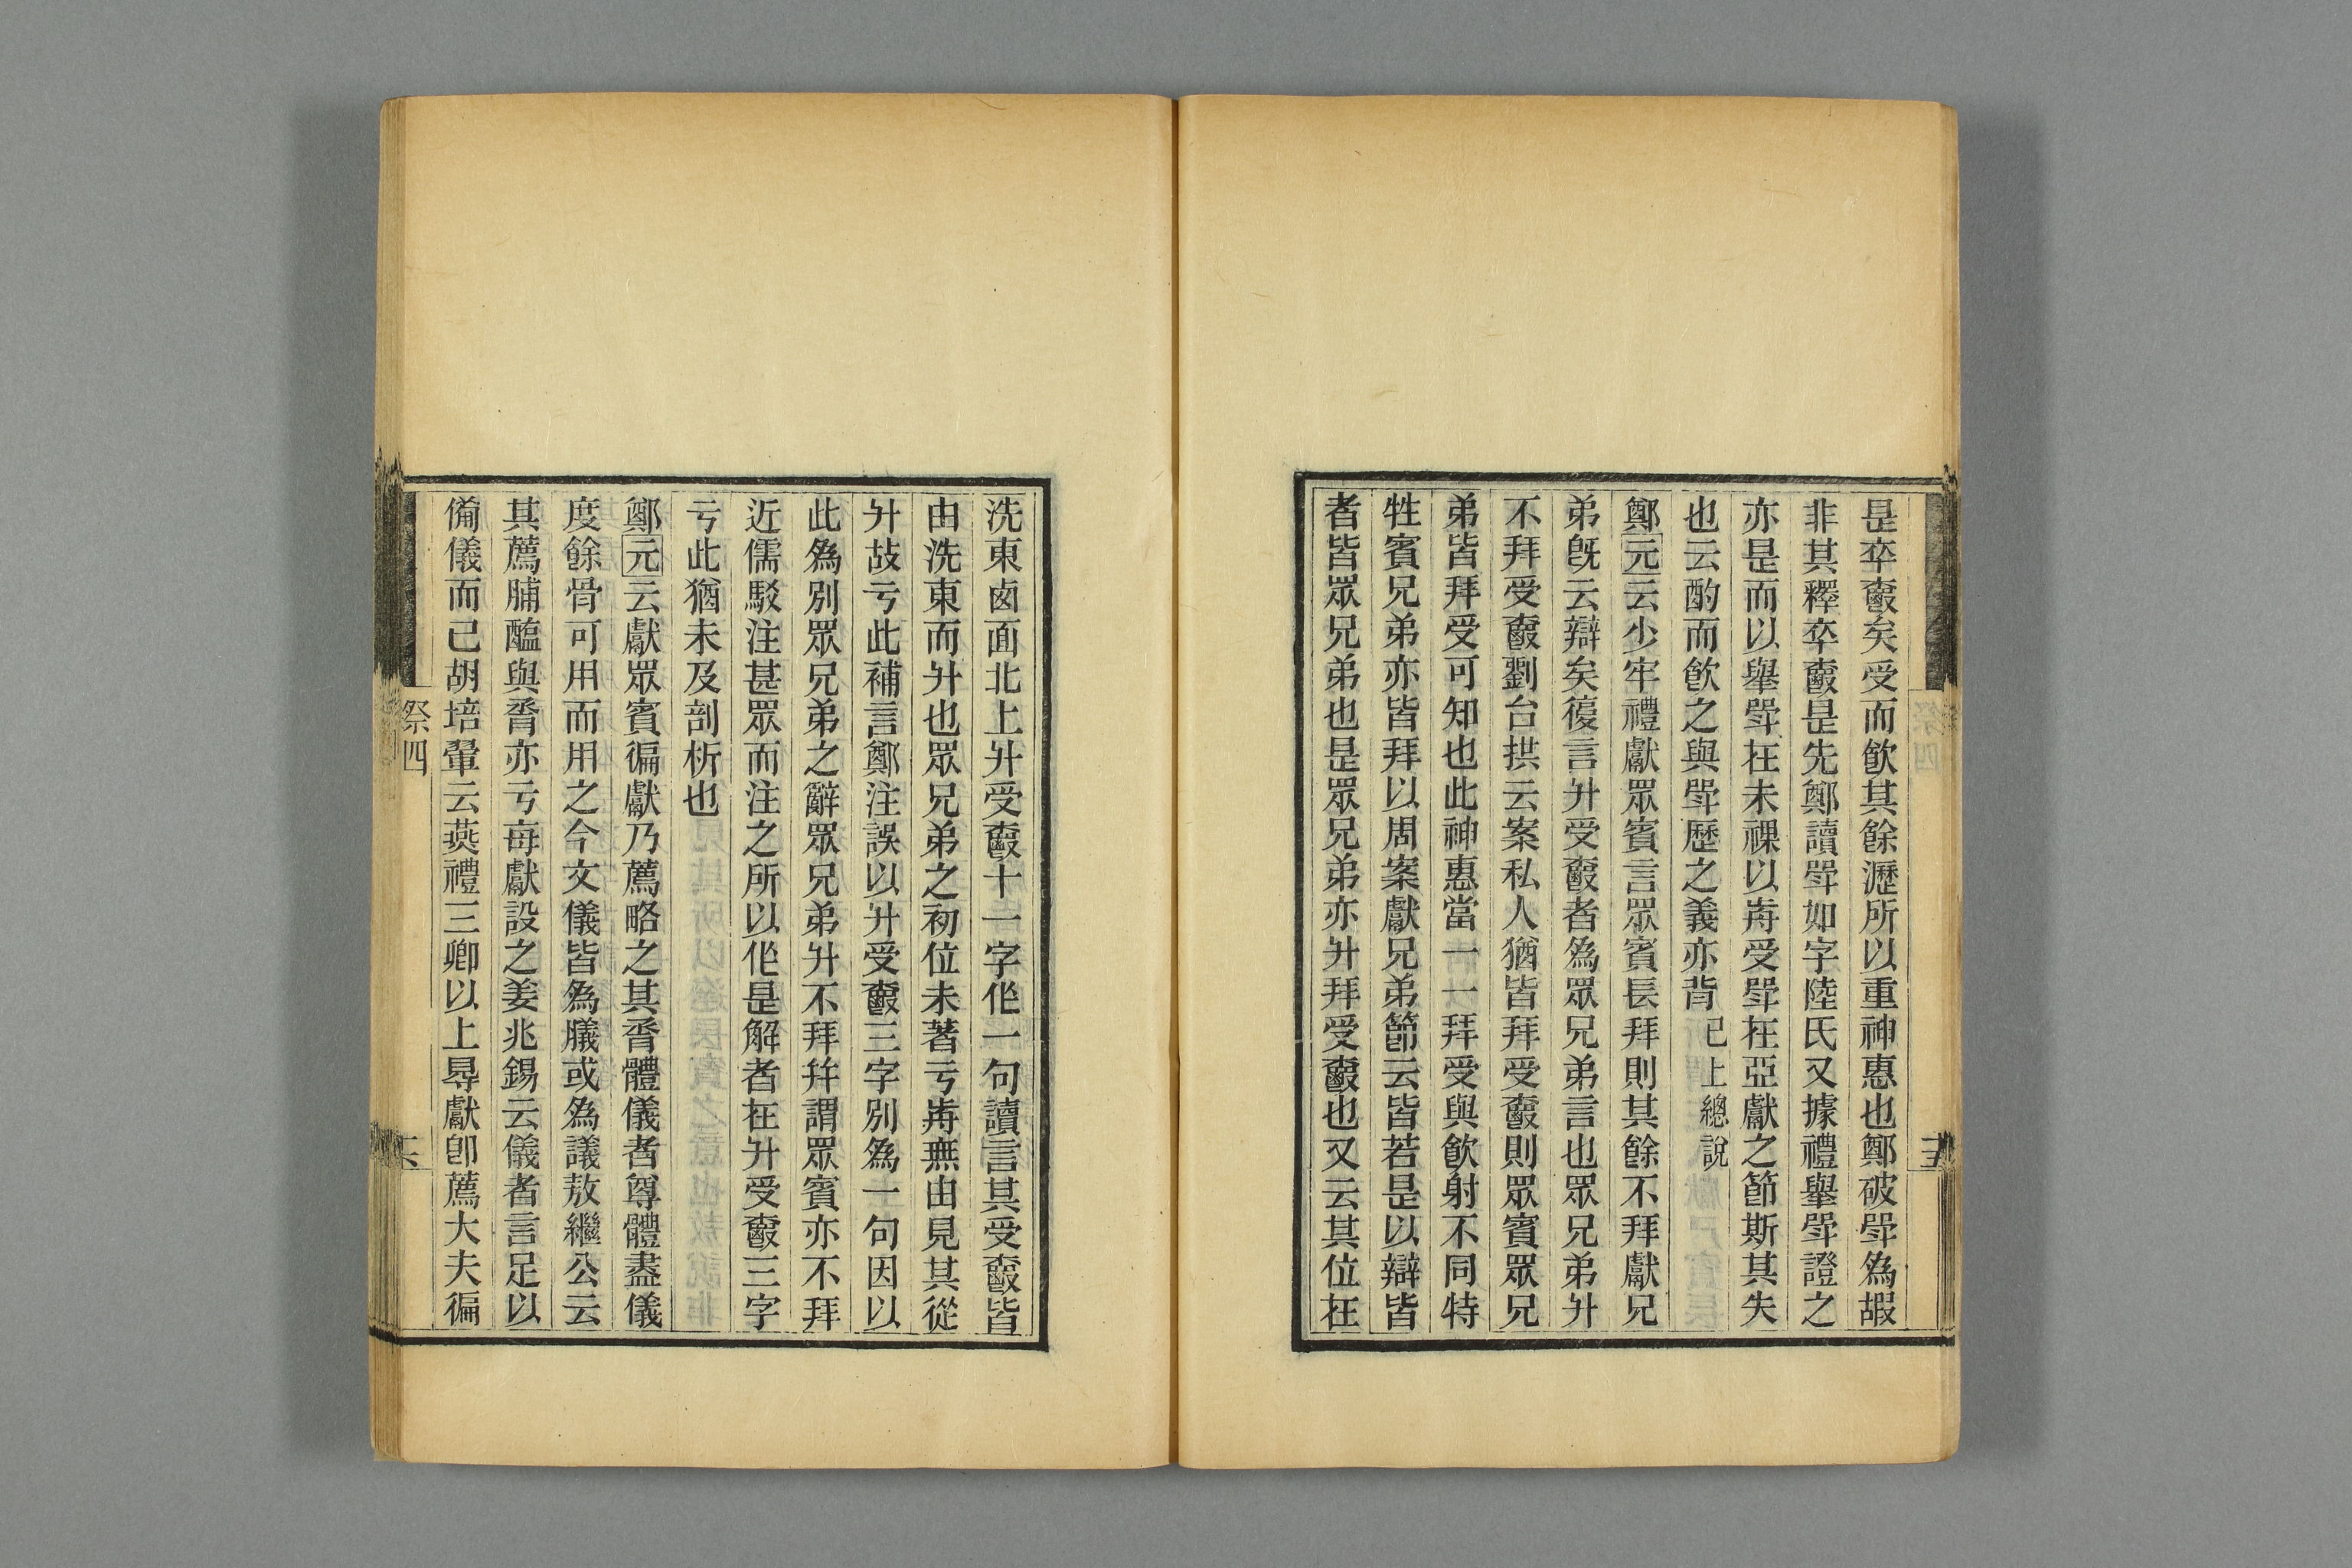 是卒爵矣受而飮其餘瀝所以重神惠也鄭破斝爲嘏
非其釋卒爵是先鄭讀斝如字陸氏又據禮舉斝證之
亦是而以舉斝在未祼以歬受斝在亞獻之節斯其失
也云酌而飮之與斝歷之義亦背已上總說
鄭元云少牢禮獻眾賓言眾賓長拜則其餘不拜獻兄
弟旣云辯矣復言升受爵者爲眾兄弟言也眾兄弟升
不拜受爵劉台拱云案私人猶皆拜受爵則眾賓眾兄
弟皆拜受可知也此神惠當一一拜受與飮射不同特
牲賓兄弟亦皆拜以周案獻兄弟節云皆若是以辯皆
者皆眾兄弟也是眾兄弟亦升拜受爵也又云其位在
洗東鹵面北上升受爵十一字作一句讀言其受爵皆
由洗東而升也眾兄弟之初位未著亏歬無由見其從
升故亏此補言鄭注誤以升受爵三字別爲一句因以
此爲別眾兄弟之辭眾兄弟升不拜幷謂眾賓亦不拜
近儒駁注甚眾而注之所以作是解者在升受爵三字
亏此猶未及剖析也
鄭元云獻眾賓徧獻乃薦略之其脀體儀者尊體盡儀
度餘骨可用而用之今文儀皆爲膱或爲議敖繼公云
其薦脯醢與脀亦亏每獻設之姜兆錫云儀者言足以
備儀而已胡培翬云燕禮三卿以上㝵獻卽薦大夫徧
祭四